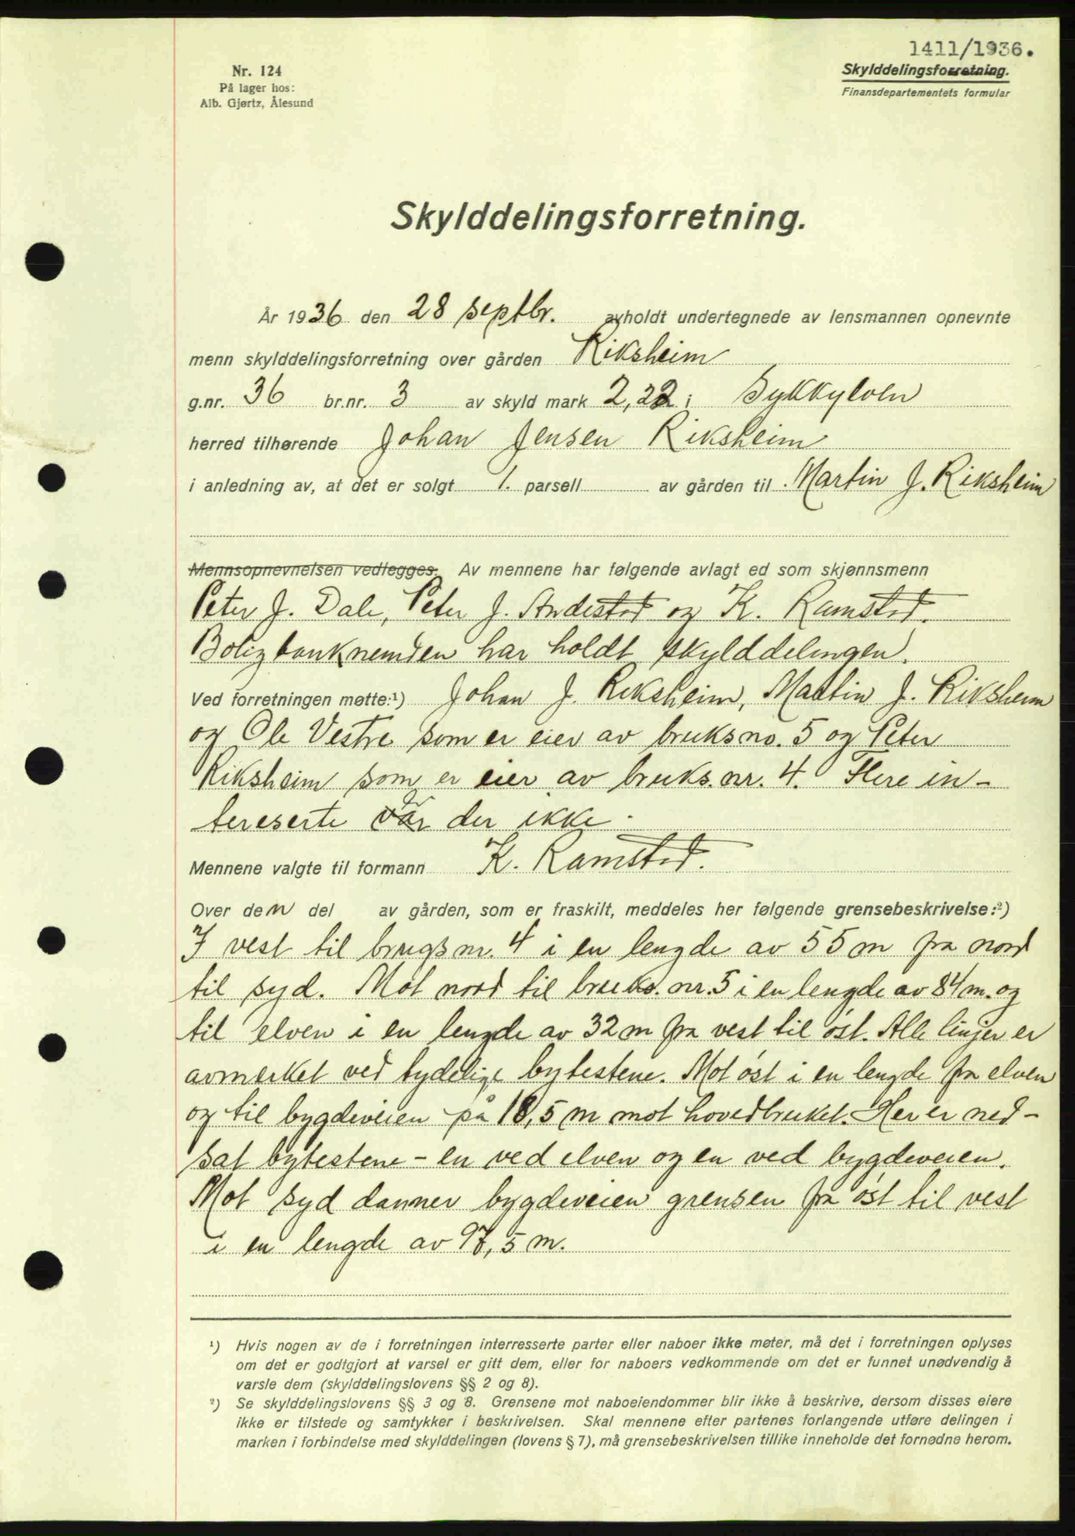 1411/1936.
Nr. 124
På lager hos:
Alb. Gjørtz, Ålesund
Skylddelingsforretning.
Finansdepartementets formular
Skylddelingsforretning.
År 1936 den 28 septbr. avholdt undertegnede av lensmannen opnevnte
menn skylddelingsforretning over gården Riksheim
g.nr. 36 br.nr. 3 av skyld mark 2,22 i Sykkylven
herred tilhørende Johan Jensen Riksheim
i anledning av, at det er solgt 1. parsell av gården til Martin J. Riksheim
Mennsopnevnelsen vedlegges. Av mennene har følgende avlagt ed som skjønnsmenn
Peter J. Dale, Peter J. Andestad og K. Ramstad.
Boligbanknemden har holdt skylddelingen.
Ved forretningen møtte:¹) Johan J. Riksheim, Martin J. Riksheim
og Ole Vestre som er eier av bruksno. 5 og Peter
Riksheim som er eier av bruks. nr. 4. Flere in-
tereserte er der ikke.
Mennene valgte til formann K. Ramstad.
Over den del av gården, som er fraskilt, meddeles her følgende grensebeskrivelse:²)
I vest til brugsnr. 4 i en lengde av 55 m fra nord
til syd. Mot nord til bruks. nr. 5 i en lengde av 84 m. og
til elven i en lengde av 32 m fra vest til øst. Alle linjer er
avmerket ved tydelige bytestene. Mot øst i en lengde fra elven
og til bygdeveien på 18,5 m mot hovedbruket. Her er ned-
sat bytestene - en ved elven og en ved bygdeveien.
Mot syd danner bygdeveien grensen fra øst til vest
i en lengde av 97,5 m.
¹) Hvis nogen av de i forretningen interresserte parter eller naboer ikke møter, må det i forretningen oplyses
om det er godtgjort at varsel er gitt dem, eller for naboers vedkommende om det er funnet unødvendig å
varsle dem (skylddelingslovens §§ 2 og 8).
²) Se skylddelingslovens §§ 3 og 8. Grensene mot naboeiendommer blir ikke å beskrive, dersom disses eiere
ikke er tilstede og samtykker i beskrivelsen. Skal mennene efter partenes forlangende utføre delingen i
marken i forbindelse med skylddelingen (lovens § 7), må grensebeskrivelsen tillike inneholde det fornødne herom.